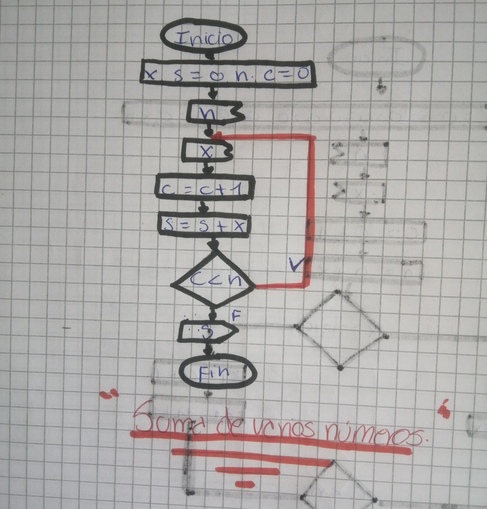 Inicio
x s=0 n. c=0
n
x
c = c+1
s = s + x
c < n
V
F
s
Fin
"Suma de varios números."